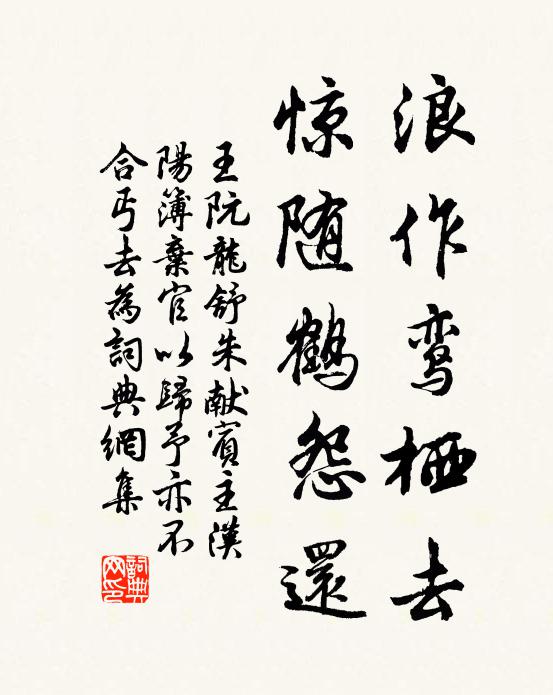 浪作鸾栖去
惊随鹤怨還
王阮龍舒朱献賓主漢
陽簿棄官以歸予亦不
合丐去為詞典網集
詞典
网印